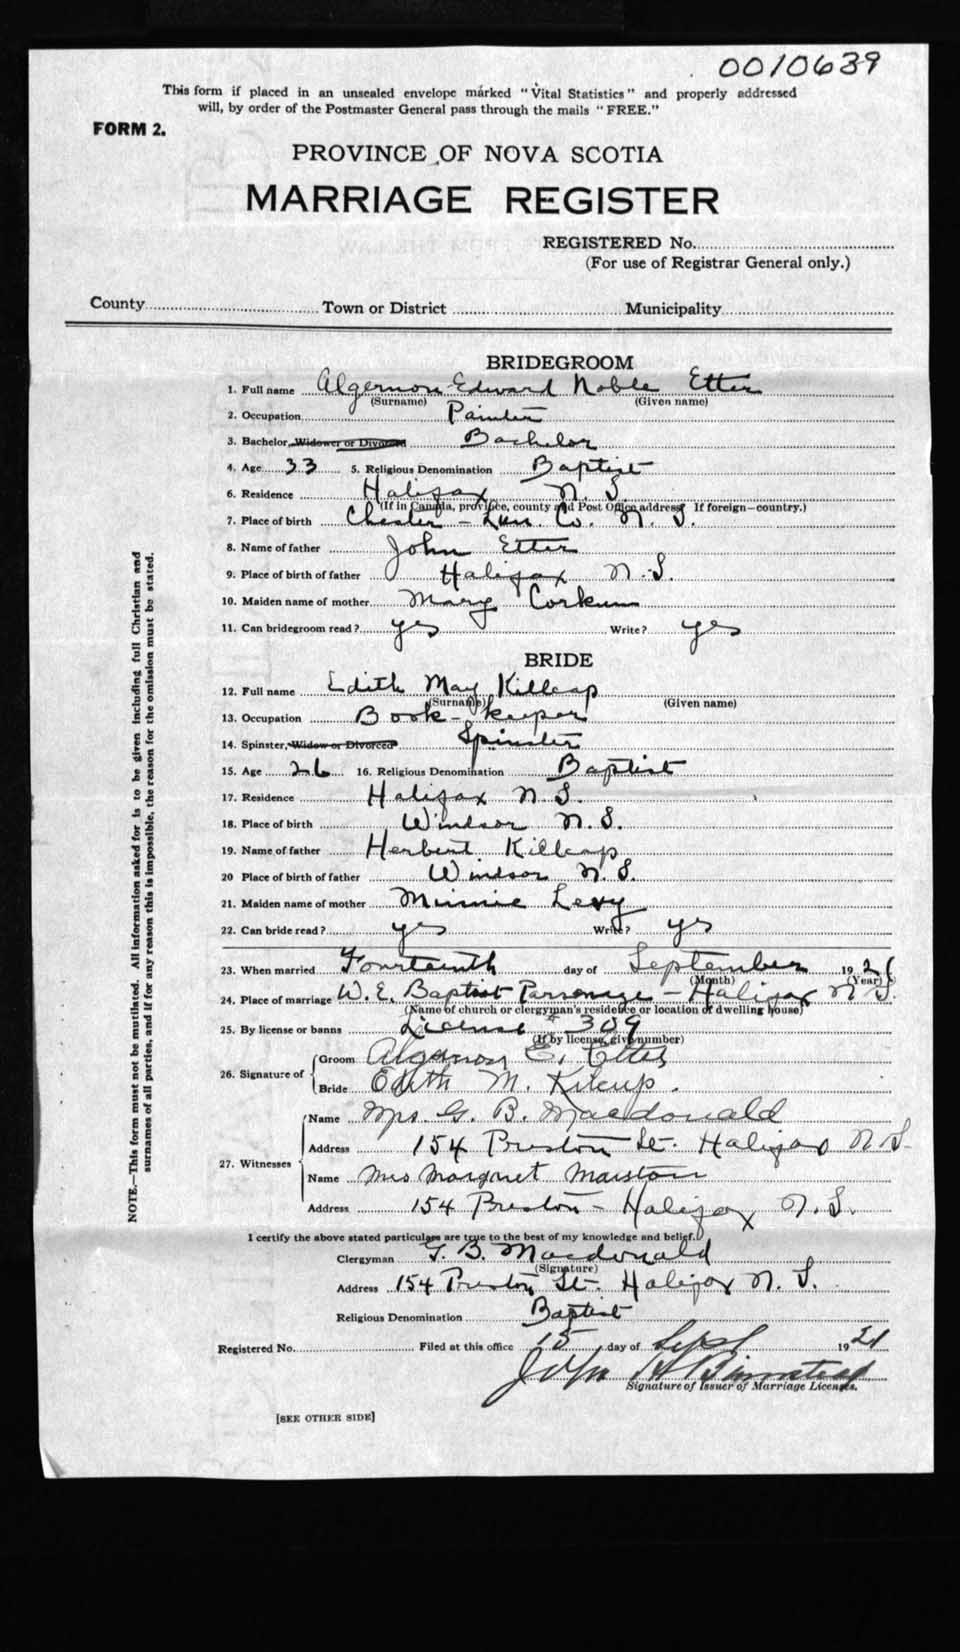 0010639
This form if placed in an unsealed envelope marked "Vital Statistics" and properly addressed
will, by order of the Postmaster General pass through the mails "FREE."
FORM 2.
PROVINCE OF NOVA SCOTIA
MARRIAGE REGISTER
REGISTERED No.
(For use of Registrar General only.)
County Town or District Municipality
BRIDEGROOM
1. Full name Algernon Edward Noble Etter
(Surname) (Given name)
2. Occupation Painter
3. Bachelor, Widower or Divorced Bachelor
4. Age 33 5. Religious Denomination Baptist
6. Residence Halifax N. S.
(If in Canada, province, county and Post Office address. If foreign—country.)
7. Place of birth Chester - Lun. Co. N. S.
8. Name of father John Etter
9. Place of birth of father Halifax N. S.
10. Maiden name of mother Mary Corkum
11. Can bridegroom read? yes Write? yes
BRIDE
12. Full name Edith May Killcap
(Surname) (Given name)
13. Occupation Book-keeper
14. Spinster, Widow or Divorced Spinster
15. Age 26 16. Religious Denomination Baptist
17. Residence Halifax N. S.
18. Place of birth Windsor N. S.
19. Name of father Herbert Killcap
20 Place of birth of father Windsor N. S.
21. Maiden name of mother Minnie Levy
22. Can bride read? yes Write? yes
23. When married Fourteenth day of September 1921
(Month) (Year)
24. Place of marriage W. E. Baptist Parsonage - Halifax N S.
(Name of church or clergyman's residence or location of dwelling house)
25. By license or banns License # 309
(If by license, give number)
26. Signature of Groom Algernon E. Etter
Bride Edith M. Kilcup.
27. Witnesses Name Mrs. G. B. Macdonald
Address 154 Preston St. Halifax N S.
Name Mrs Margaret Marston
Address 154 Preston - Halifax N. S.
I certify the above stated particulars are true to the best of my knowledge and belief.
Clergyman G. B. Macdonald
(Signature)
Address 154 Preston St. Halifax N. S.
Religious Denomination Baptist
Registered No. Filed at this office 15 day of Sept 1921
John H Binnstead
Signature of Issuer of Marriage Licenses.
[SEE OTHER SIDE]
NOTE.—This form must not be mutilated. All information asked for is to be given including full Christian and
surnames of all parties, and if for any reason this is impossible, the reason for the omission must be stated.